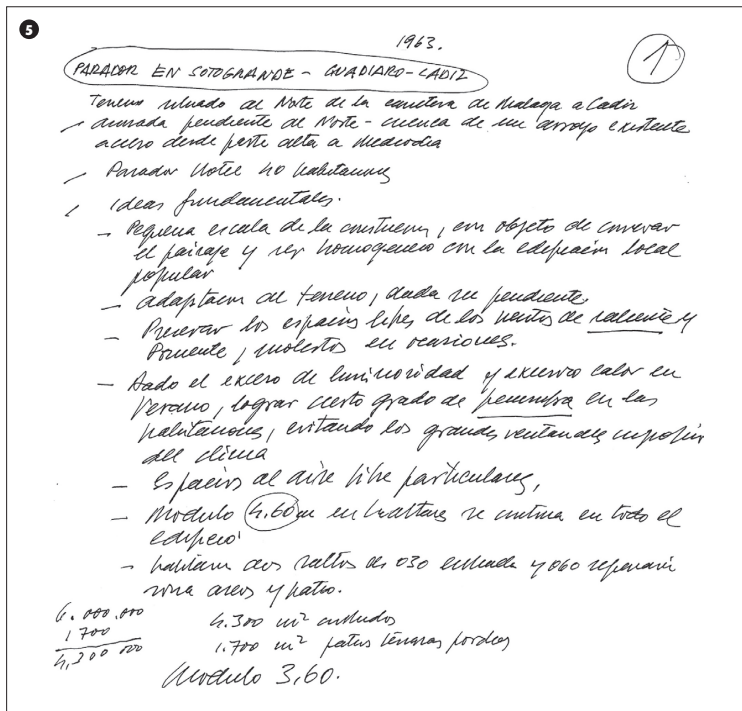 5
1963.
1
PARADOR EN SOTOGRANDE - GUADIARO - CADIZ
Terreno situado al Norte de la carretera de Malaga a Cadiz
pendiente al Norte - cuenca de un arroyo existente
acceso desde parte alta a Mediodia
Parador Hotel 40 habitaciones
Ideas fundamentales.
- Pequeña escala de la construccion, con objeto de conservar
el paisaje y ser homogeneo con la edificación local
popular
- adaptacion al terreno, dada su pendiente.
- Preservar los espacios libres de los vientos de Levante y
Poniente, molestos en ocasiones.
- Dado el exceso de luminosidad y excesivo calor en
Verano, lograr cierto grado de penumbra en las
habitaciones, evitando los grandes ventanales impropios
del clima
- Espacios al aire libre particulares,
- Modulo 4,60 en se continua en todo el
edificio
- habitacion dos saltos de 030 entrada y 060 separación
zona aseos y patio.
6.000.000
1 700
4,300 000
4.300 m² construidos
1.700 m² patios terrazas porches
Modulo 3,60.